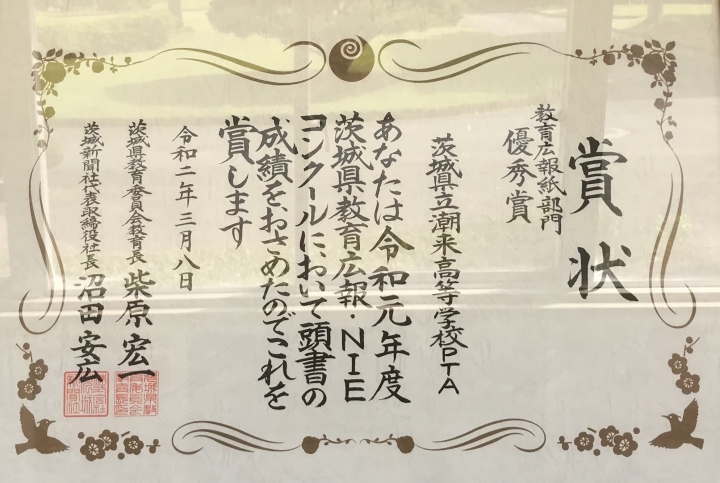 賞状
教育広報紙部門
優秀賞
茨城県立潮来高等学校PTA
あなたは令和元年度
茨城県教育広報・NIE
コンクールにおいて頭書の
成績をおさめたのでこれを
賞します
令和二年三月八日
茨城県教育委員会教育長 柴原宏一
茨城新聞社代表取締役社長 沼田安広